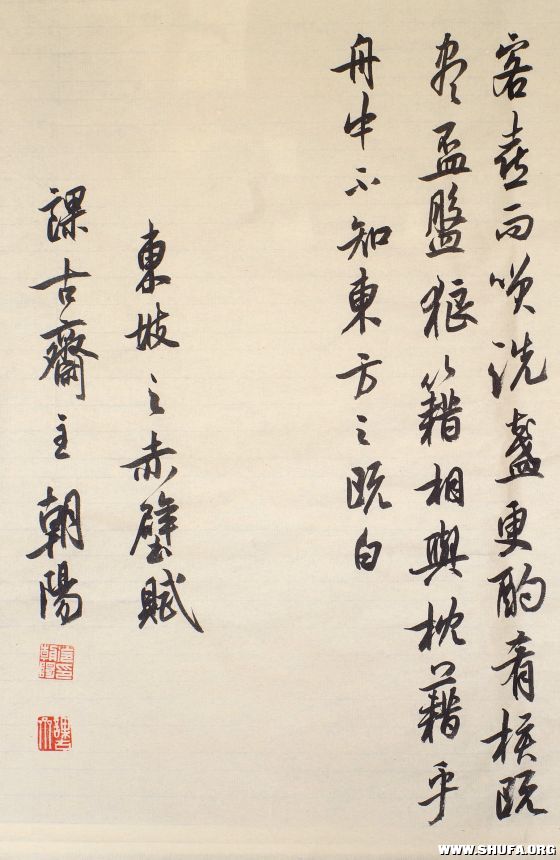 客喜而咲洗盞更酌肴核既
盡盃盤狼籍相與枕藉乎
舟中不知東方之既白
東坡之赤壁賦
課古齋主朝陽
WWW.SHUFA.ORG